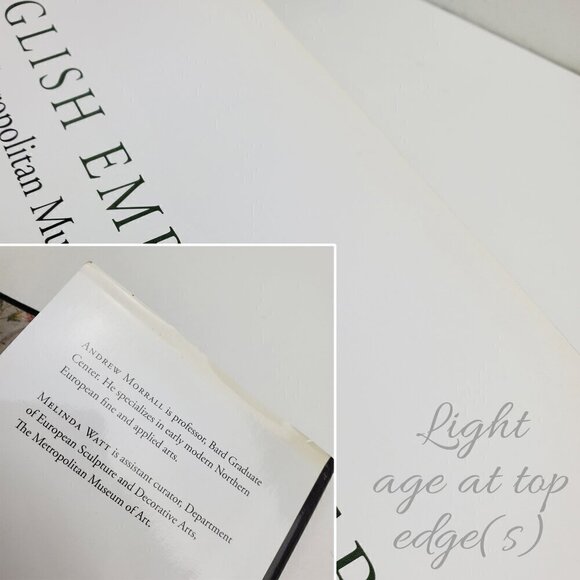 GLISH EM
Mu
ANDREW MORRALL is professor, Bard Graduate
Center. He specializes in early modern Northern
European fine and applied arts.
MELINDA WATT is assistant curator, Department
of European Sculpture and Decorative Arts,
The Metropolitan Museum of Art.
Light
age at top
edge(s)